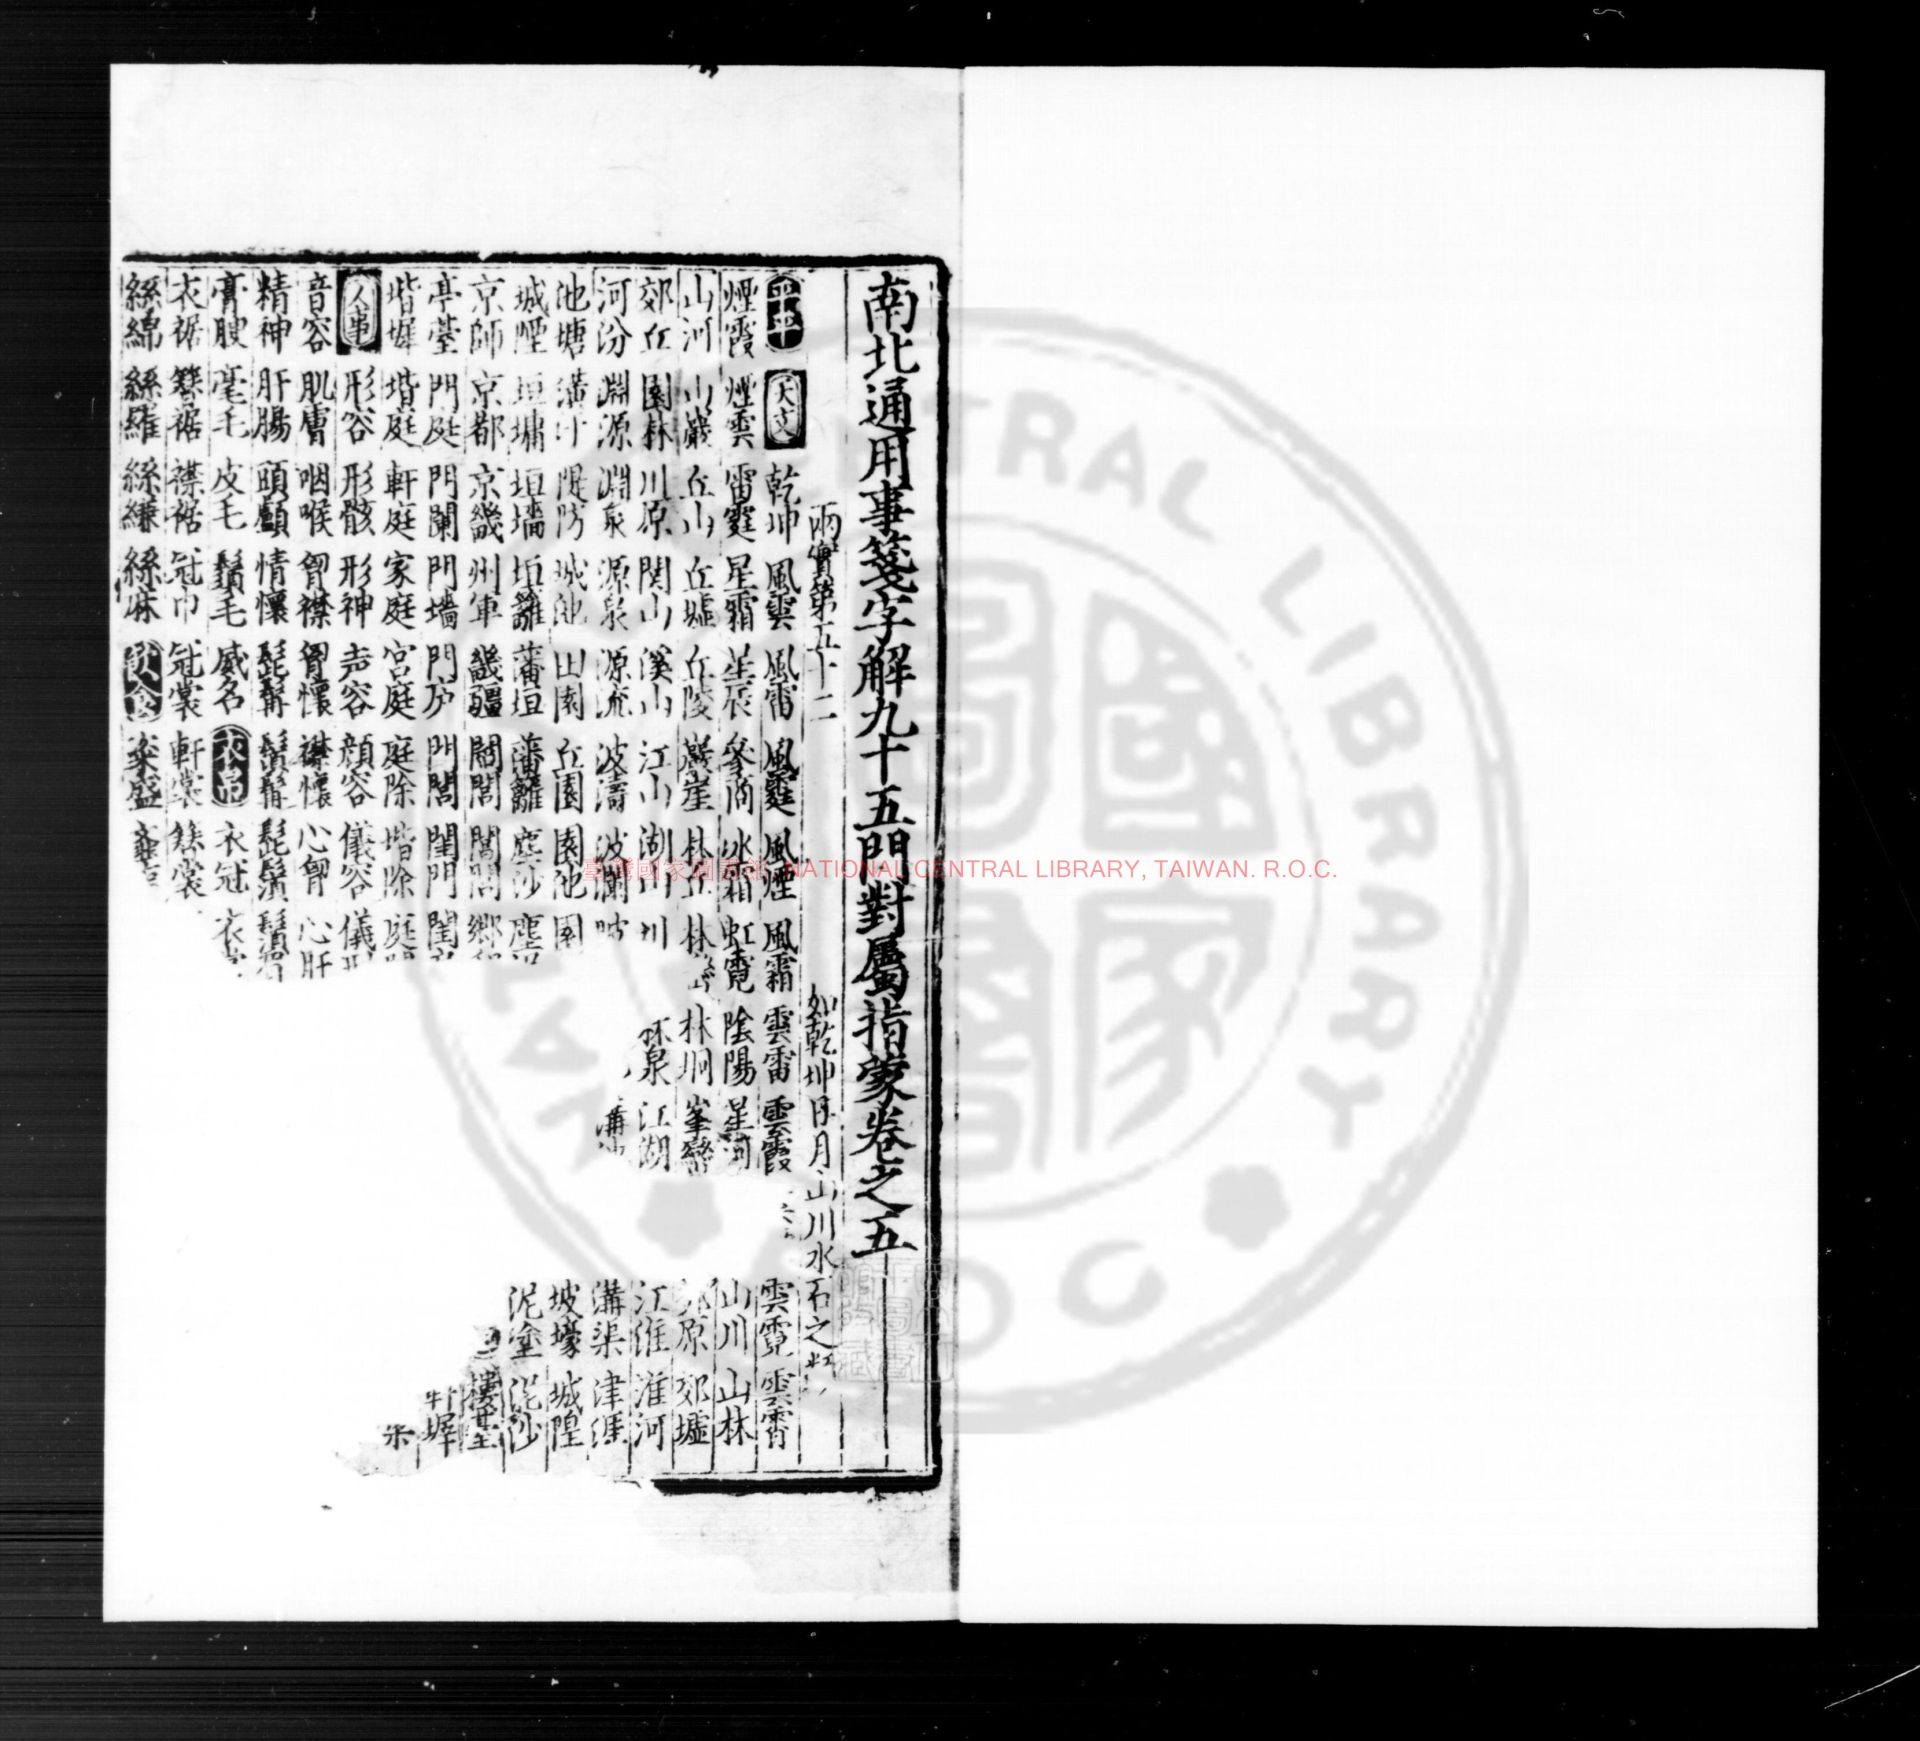 南北通用事箋字解九十五門對屬指蒙卷之五
兩實第五十二 如乾坤日月山川水石之
平平 天文 乾坤 風雲 風雷 風霆 風煙 風霜 雲雷 雲霞 雲霓 雲霄
煙霞 煙雲 雷霆 星霜 星辰 參商 冰霜 虹霓 陰陽 星河 山川 山林
山河 山巖 丘山 丘墟 丘陵 巖崖 林丘 林巒 林坰 峯巒 郊原 郊墟
郊丘 園林 川原 関山 溪山 江山 湖山 山川 林泉 江湖 江淮 淮河
河汾 淵源 淵泉 源泉 源流 波濤 波瀾 溝渠 津涯
池塘 潢汙 隄防 城池 田園 丘園 園池 園 坡壕 城隍
城煙 垣墉 垣墻 垣籬 藩垣 藩籬 塵沙 塵 泥塗 泥沙
京師 京都 京畿 州軍 畿疆 閭閻 閭閻 鄉 樓臺
亭臺 門庭 門闌 門墻 門庐 門閭 閨門 閨 軒墀
堦墀 堦庭 軒庭 家庭 宮庭 庭除 堦除 庭
人事 形容 形骸 形神 声容 顏容 儀容 儀
音容 肌膚 咽喉 胷襟 胷懷 襟懷 心胷 心肝
精神 肝腸 頭顱 情懷 髭髯 鬚髯 髭鬚
膏腴 毫毛 皮毛 鬚毛 威名 衣帛 衣冠 衣
衣裾 簪裾 襟裾 冠巾 冠裳 軒裳 簪裳
絲綿 絲羅 絲縑 絲麻 飲食 粢盛
臺灣國家圖書館, NATIONAL CENTRAL LIBRARY, TAIWAN. R.O.C.